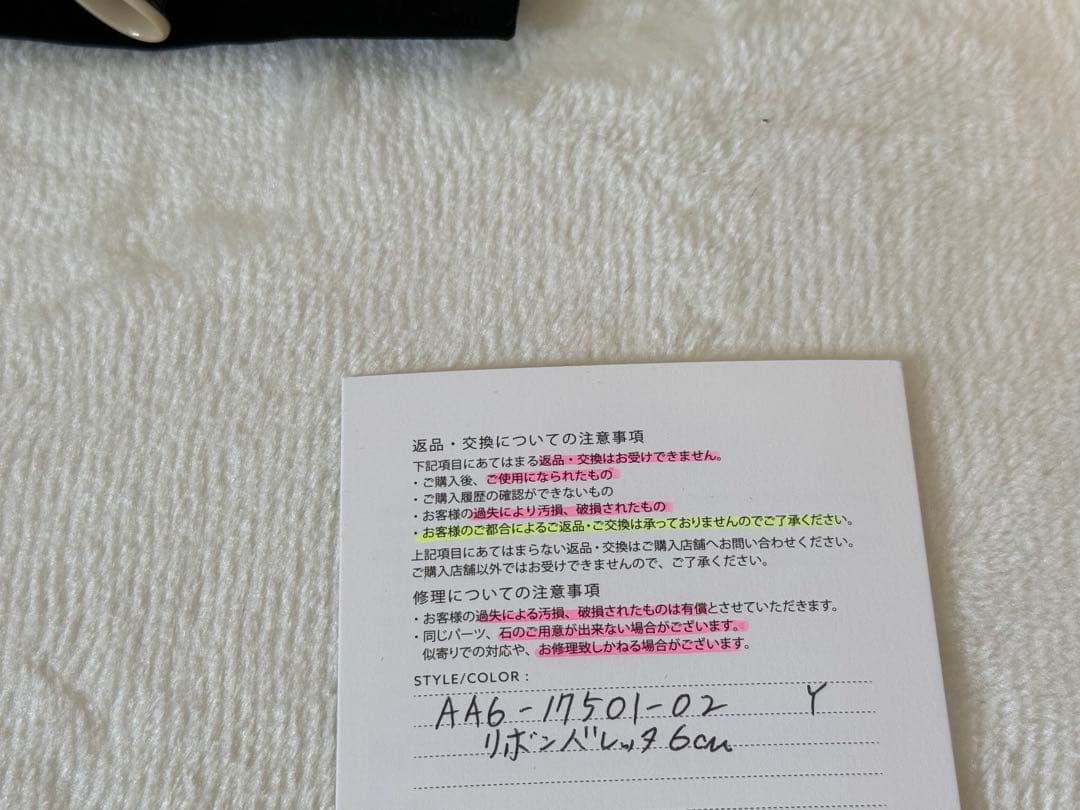 返品・交換についての注意事項
下記項目にあてはまる返品・交換はお受けできません。
・ご購入後、ご使用になられたもの
・ご購入履歴の確認ができないもの
・お客様の過失により汚損、破損されたもの
・お客様のご都合によるご返品・ご交換は承っておりませんのでご了承ください。
上記項目にあてはまらない返品・交換はご購入店舗へお問い合わせください。
ご購入店舗以外ではお受けできませんので、ご了承ください。
修理についての注意事項
・お客様の過失による汚損、破損されたものは有償とさせていただきます。
・同じパーツ、石のご用意が出来ない場合がございます。
似寄りでの対応や、お修理致しかねる場合がございます。
STYLE/COLOR :
AA6-17501-02 Y
リボンバレッタ6cm